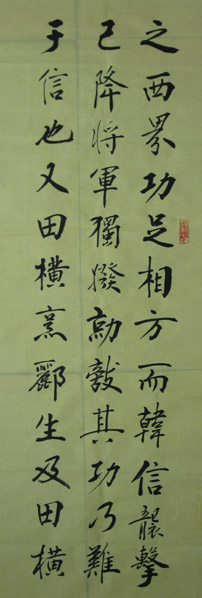 之西界功足相方而韓信襲擊
已降將軍獨撥勍敵其功乃難
于信也又田橫烹酈生及田橫